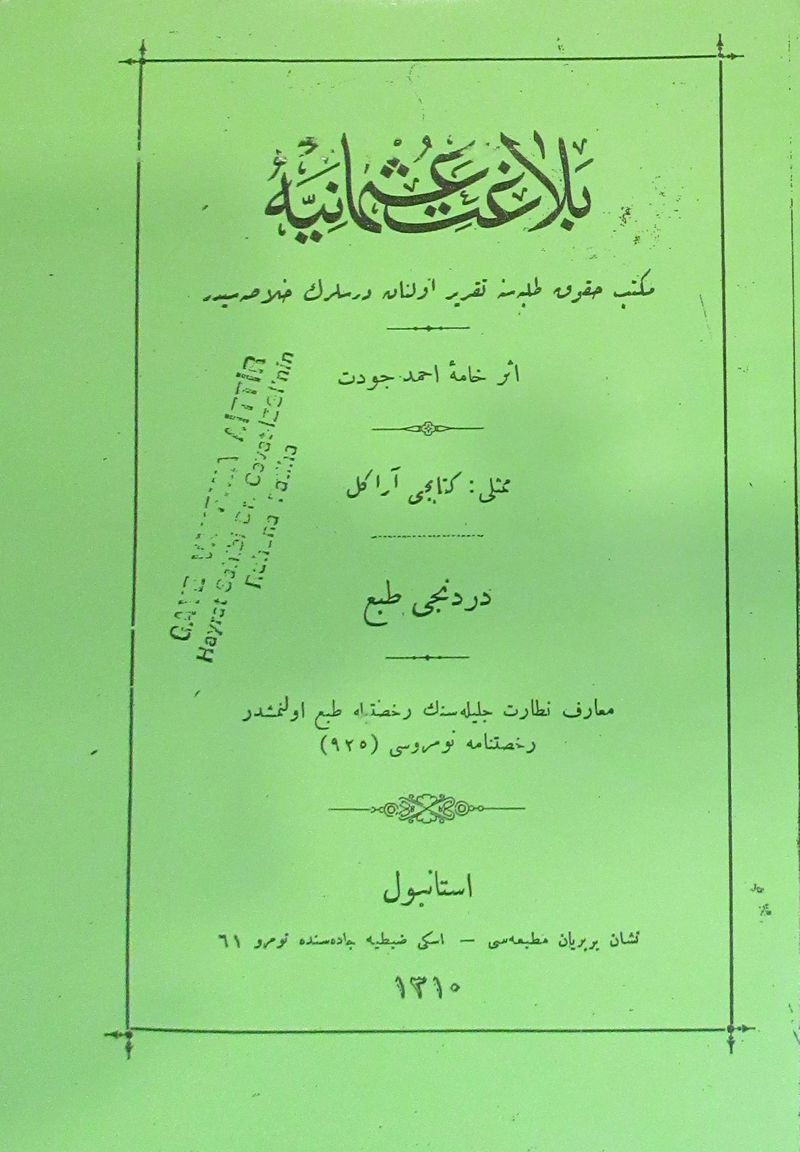 بلاغت عثمانیه
مكتب حقوق طلبه‌سنه تقریر اولنان درسلرك خلاصه‌سیدر
اثر خامهٔ احمد جودت
ممثلی : كتابجی آراكل
دردنجی طبع
معارف نظارت جلیله‌سنك رخصتیله طبع اولنمشدر
رخصتنامه نومروسی (٩٢٥)
استانبول
نشان بربریان مطبعه‌سی — اسكی ضبطیه جاده‌سنده نومرو ٦١
١٣١٠
AİTTİR
Hayrat Sahibi Dr. Cevat İzgi'nin
Ruhuna Fatiha